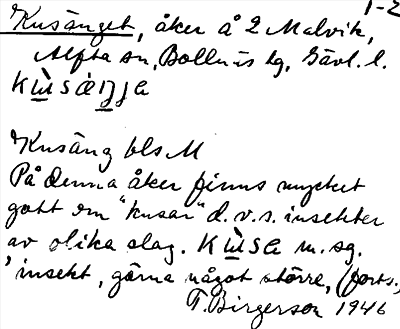 1-2
Kusänget, åker å 2 Malvik,
Alfta sn, Bollnäs tg, Gävl. l.
Kusäng bls M
På denna åker finns mycket
gott om "kusar" d.v.s. insekter
av olika slag. kùsa m. sg.
'insekt, gärna något större, (forts.)
T. Birgerson 1946